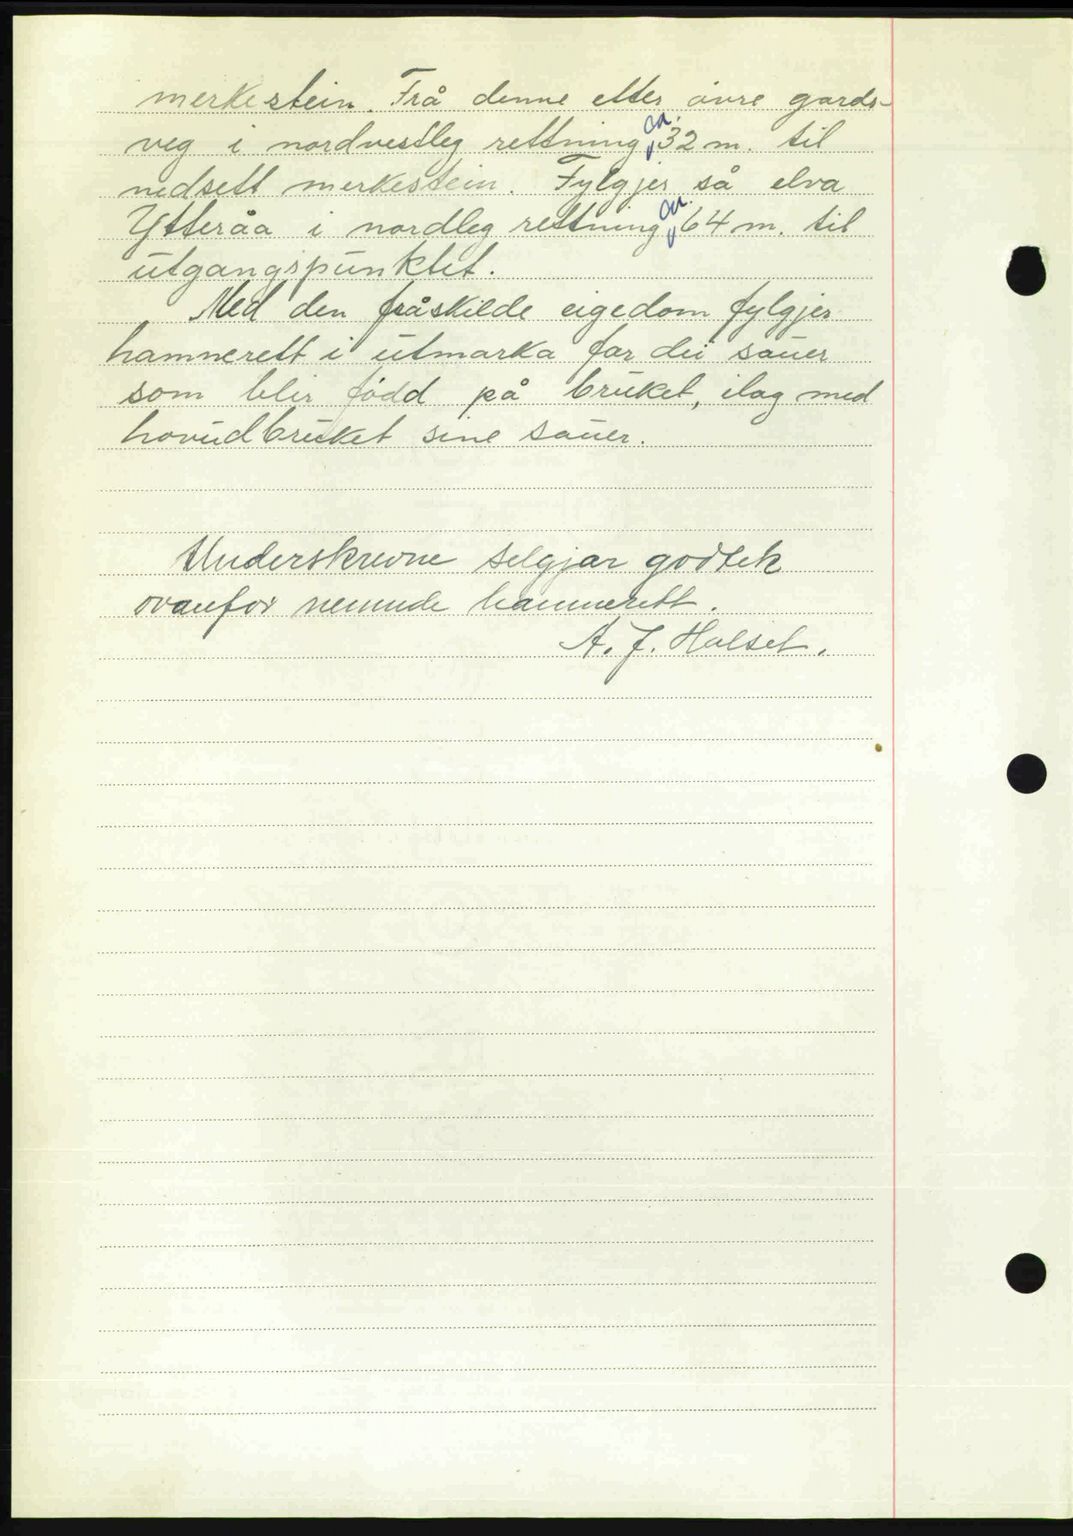 merkestein. Frå denne etter øvre gards-
veg i nordvestleg rettning ca. 32 m. til
nedsett merkestein. Fylgjer så elva
Ytteråa i nordleg rettning ca. 64 m. til
utgangspunktet.
Med den fråskilde eigedom fylgjer
hamnerett i utmarka for dei sauer
som blir fødd på bruket, ilag med
hovudbruket sine sauer.
Underskrevne seljgar godtek
ovanfor nemnde hamnerett.
A. J. Halset.